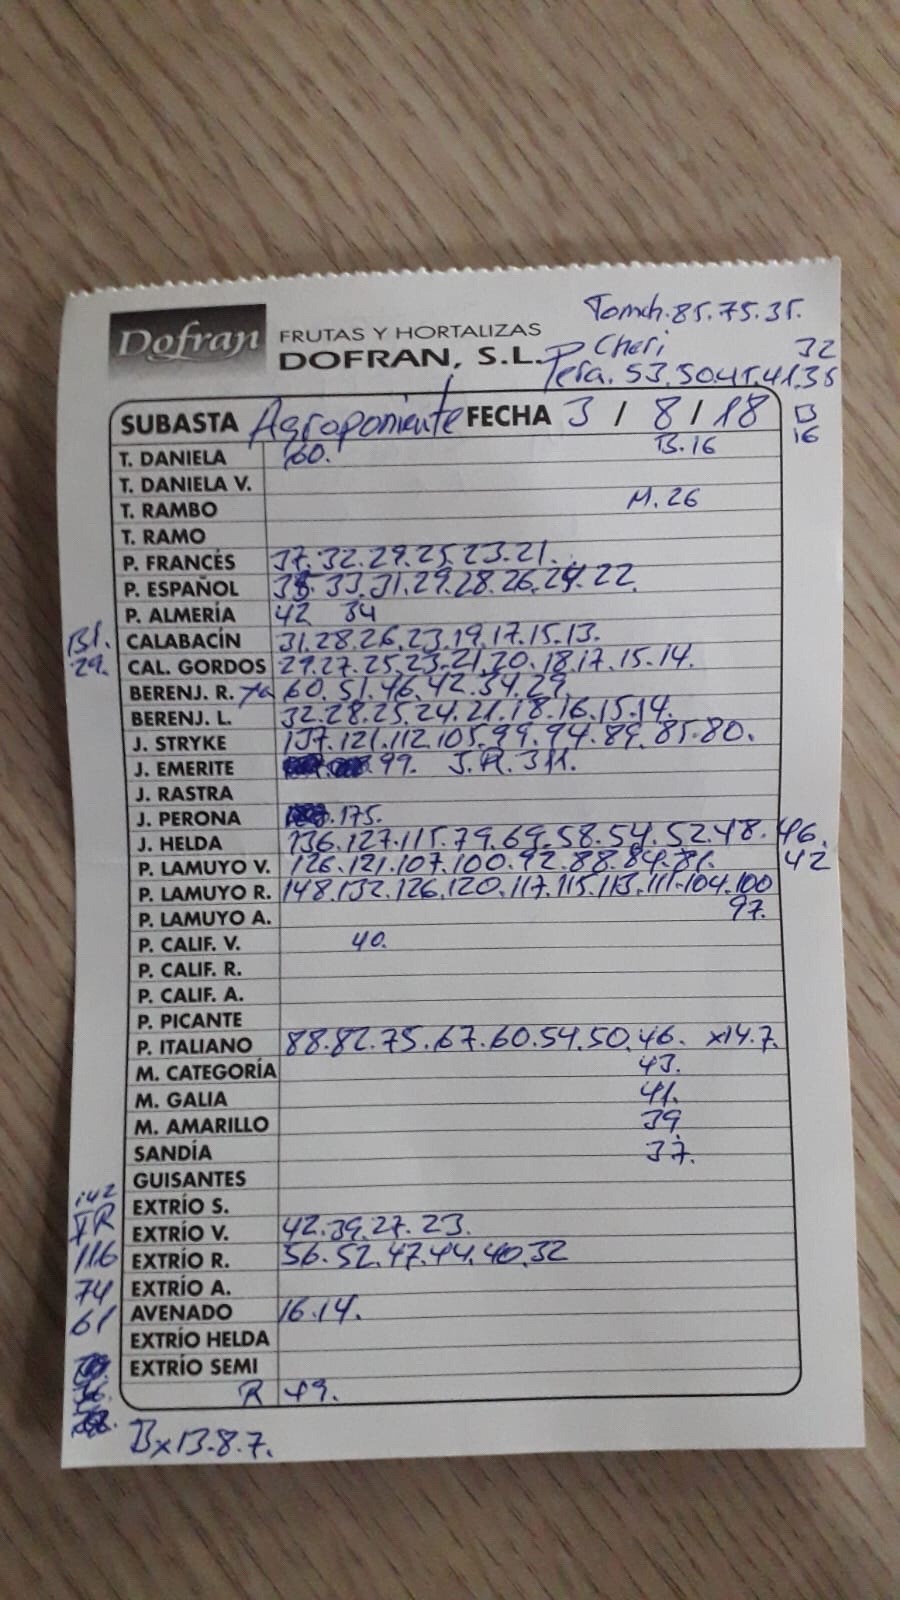 Dofran FRUTAS Y HORTALIZAS
DOFRAN, S.L.
Tomch. 85.75.35.
P Cheri 32
Pera. 53.50.45.41.38
SUBASTA Agroponiente FECHA 3 / 8 / 18 B
16
T. DANIELA 60. B.16
T. DANIELA V.
T. RAMBO M. 26
T. RAMO
P. FRANCÉS 37.32.29.25.23.21.
P. ESPAÑOL 38.33.31.29.28.26.24.22.
P. ALMERÍA 42 34
Bl. CALABACÍN 31.28.26.23.19.17.15.13.
29. CAL. GORDOS 29.27.25.23.21.20.18.17.15.14.
BERENJ. R. 60.51.46.42.34.29.
BERENJ. L. 32.28.25.24.21.18.16.15.14.
J. STRYKE 137.121.112.105.99.94.89.85.80.
J. EMERITE 99. J.R. 311.
J. RASTRA
J. PERONA .175.
J. HELDA 136.127.115.79.69.58.54.52.48.46.
42
P. LAMUYO V. 126.121.107.100.92.88.84.81.
P. LAMUYO R. 148.132.126.120.117.115.113.111.104.100
97.
P. LAMUYO A.
P. CALIF. V. 40.
P. CALIF. R.
P. CALIF. A.
P. PICANTE
P. ITALIANO 88.82.75.67.60.54.50.46. x14.7.
M. CATEGORÍA 43.
M. GALIA 41.
M. AMARILLO 39.
SANDÍA 37.
GUISANTES
142 EXTRÍO S.
R EXTRÍO V. 42.39.27.23.
116 EXTRÍO R. 56.52.47.44.40.32
74 EXTRÍO A.
61 AVENADO 16.14.
EXTRÍO HELDA
EXTRÍO SEMI
R 49.
Bx13.8.7.